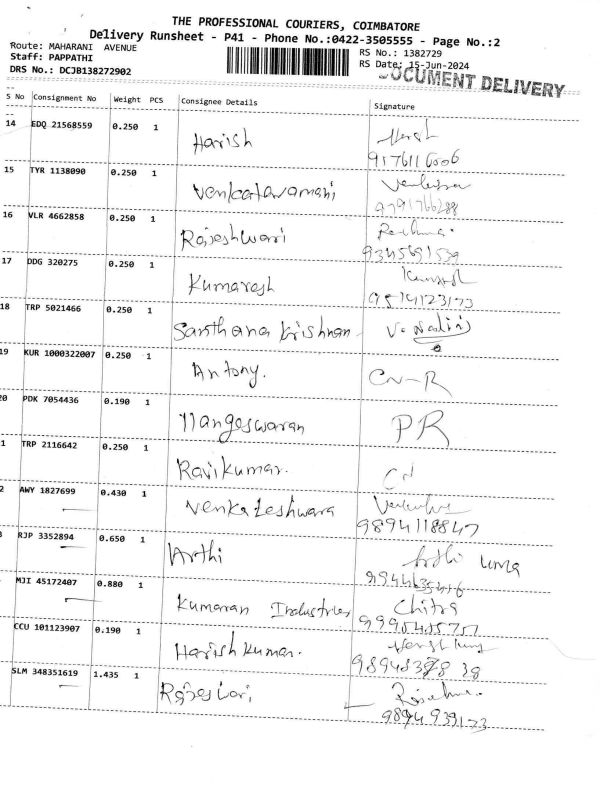 THE PROFESSIONAL COURIERS, COIMBATORE
Delivery Runsheet - P41 - Phone No.:0422-3505555 - Page No.:2
Route: MAHARANI AVENUE
Staff: PAPPATHI
DRS No.: DCJB138272902
RS No.: 1382729
RS Date: 15-Jun-2024
DOCUMENT DELIVERY
S No Consignment No Weight PCS Consignee Details Signature
14 EDQ 21568559 0.250 1 Harish
15 TYR 1138090 0.250 1 Venkataramani
16 VLR 4662858 0.250 1 Rajeshwari
17 DDG 320275 0.250 1 Kumaresh
18 TRP 5021466 0.250 1 Santhana Krishnan
19 KUR 1000322007 0.250 1 Antony. CN-R
20 PDK 7054436 0.190 1 Mangeswaran PR
1 TRP 2116642 0.250 1 Ravikumar. CN
2 AWY 1827699 0.430 1 Venkateshwara
9894118847
3 RJP 3352894 0.650 1 Arthi
MJI 45172407 0.880 1 Kumaran Industries Chitra
CCU 101123907 0.190 1 Harish kumar.
SLM 348351619 1.435 1 Rajeswari
9894939173